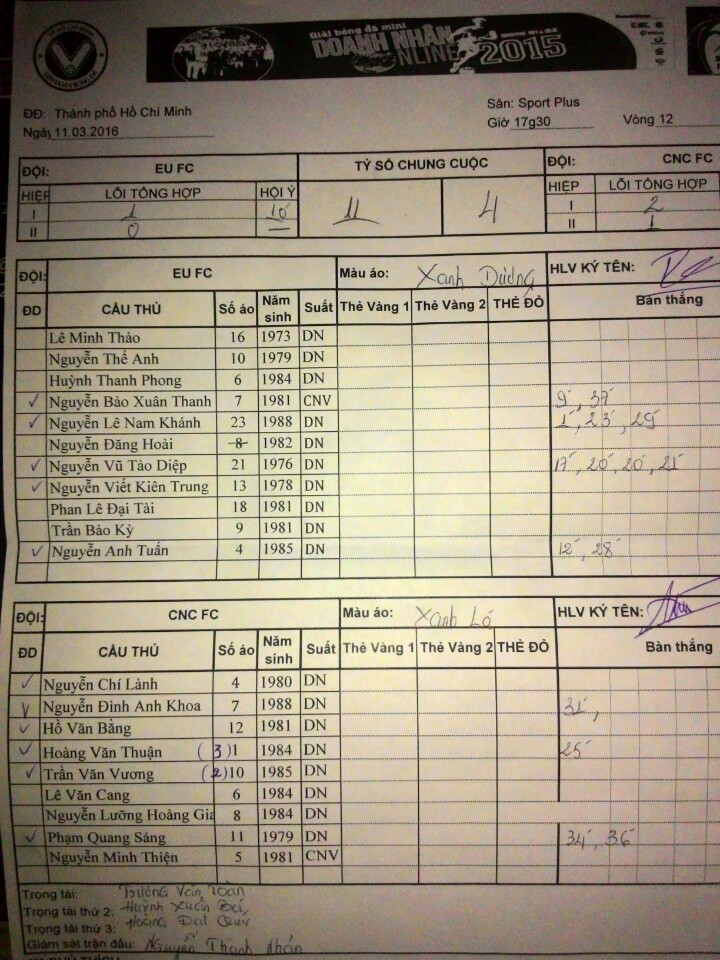 Giải bóng đá mini
DOANH NHÂN
ONLINE 2015
ĐĐ: Thành phố Hồ Chí Minh
Sân: Sport Plus
Ngày 11.03.2016
Giờ 17g30 Vòng 12
ĐỘI: EU FC TỶ SỐ CHUNG CUỘC ĐỘI: CNC FC
HIỆP LỖI TỔNG HỢP HỘI Ý 11 4 HIỆP LỖI TỔNG HỢP
I 1 10' I 2
II 0 — II 1
ĐỘI: EU FC Màu áo: Xanh Dương HLV KÝ TÊN:
ĐD CẦU THỦ Số áo Năm sinh Suất Thẻ Vàng 1 Thẻ Vàng 2 THẺ ĐỎ Bàn thắng
Lê Minh Thảo 16 1973 DN
Nguyễn Thế Anh 10 1979 DN
Huỳnh Thanh Phong 6 1984 DN
✓ Nguyễn Bảo Xuân Thanh 7 1981 CNV 9', 37'
✓ Nguyễn Lê Nam Khánh 23 1988 DN 1', 23', 29'
Nguyễn Đăng Hoài 8 1982 DN
✓ Nguyễn Vũ Tảo Diệp 21 1976 DN 17', 20', 20', 21'
✓ Nguyễn Viết Kiên Trung 13 1978 DN
Phan Lê Đại Tài 18 1981 DN
Trần Bảo Kỳ 9 1981 DN
✓ Nguyễn Anh Tuấn 4 1985 DN 12', 28'
ĐỘI: CNC FC Màu áo: Xanh Lá HLV KÝ TÊN:
ĐD CẦU THỦ Số áo Năm sinh Suất Thẻ Vàng 1 Thẻ Vàng 2 THẺ ĐỎ Bàn thắng
✓ Nguyễn Chí Lành 4 1980 DN
✓ Nguyễn Đình Anh Khoa 7 1988 DN 31',
✓ Hồ Văn Bằng 12 1981 DN
✓ Hoàng Văn Thuận (3) 1 1984 DN 25'
✓ Trần Văn Vương (2) 10 1985 DN
Lê Văn Cang 6 1984 DN
Nguyễn Lưỡng Hoàng Gia 8 1984 DN
✓ Phạm Quang Sáng 11 1979 DN 34', 36'
Nguyễn Minh Thiện 5 1981 CNV
Trọng tài: Trương Văn Toàn
Trọng tài thứ 2: Huỳnh Xuân
Trọng tài thứ 3: Hoàng Đạt Quý
Giám sát trận đấu: Nguyễn Thành Nhân